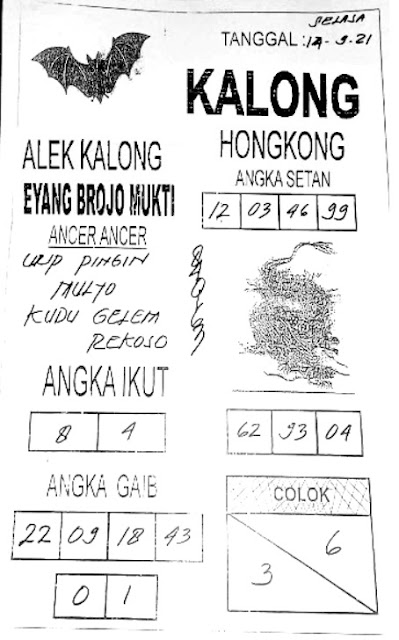 SELASA
TANGGAL : 14-9-21
KALONG
HONGKONG
ANGKA SETAN
12 03 46 99
ALEK KALONG
EYANG BROJO MUKTI
ANCER ANCER
URIP PINGIN
MULYO
KUDU GELEM
REKOSO
ANGKA IKUT
8 4
62 93 04
ANGKA GAIB
22 09 18 43
0 1
COLOK
3 6